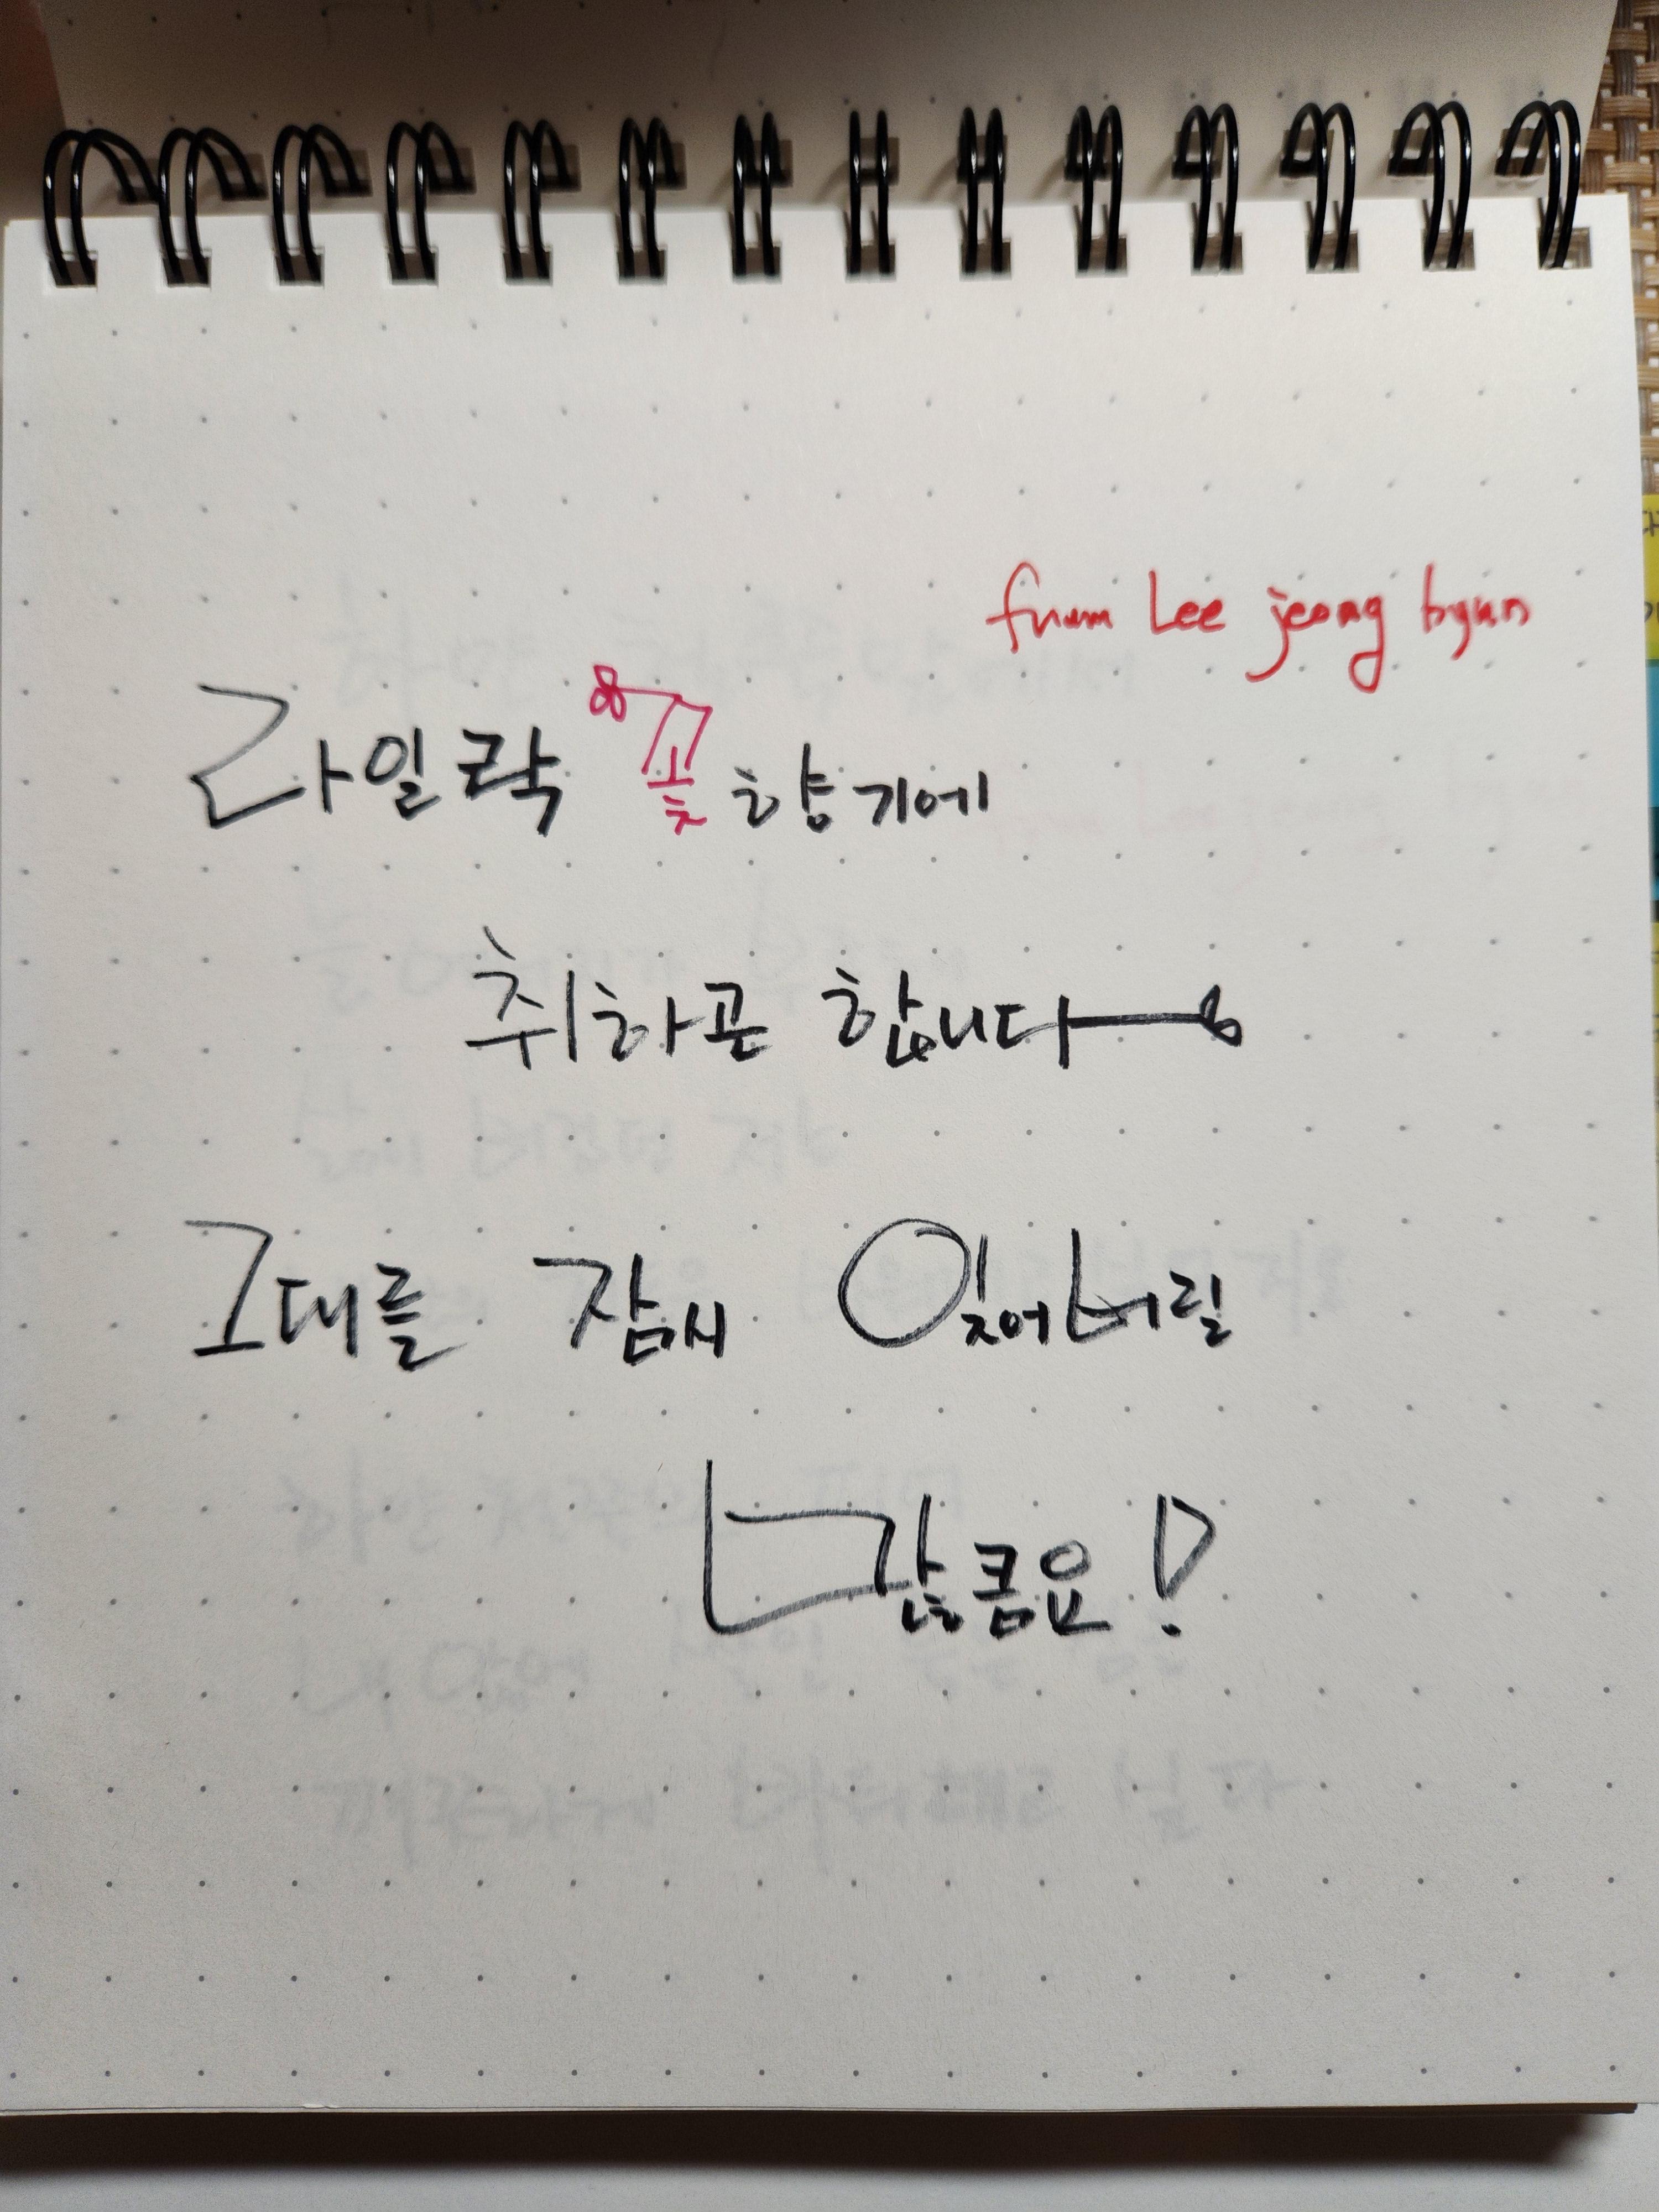 from Lee jeong hyun
라일락 꽃 향기에
취하곤 합니다
그대를 잠시 잊어버릴
만큼요!